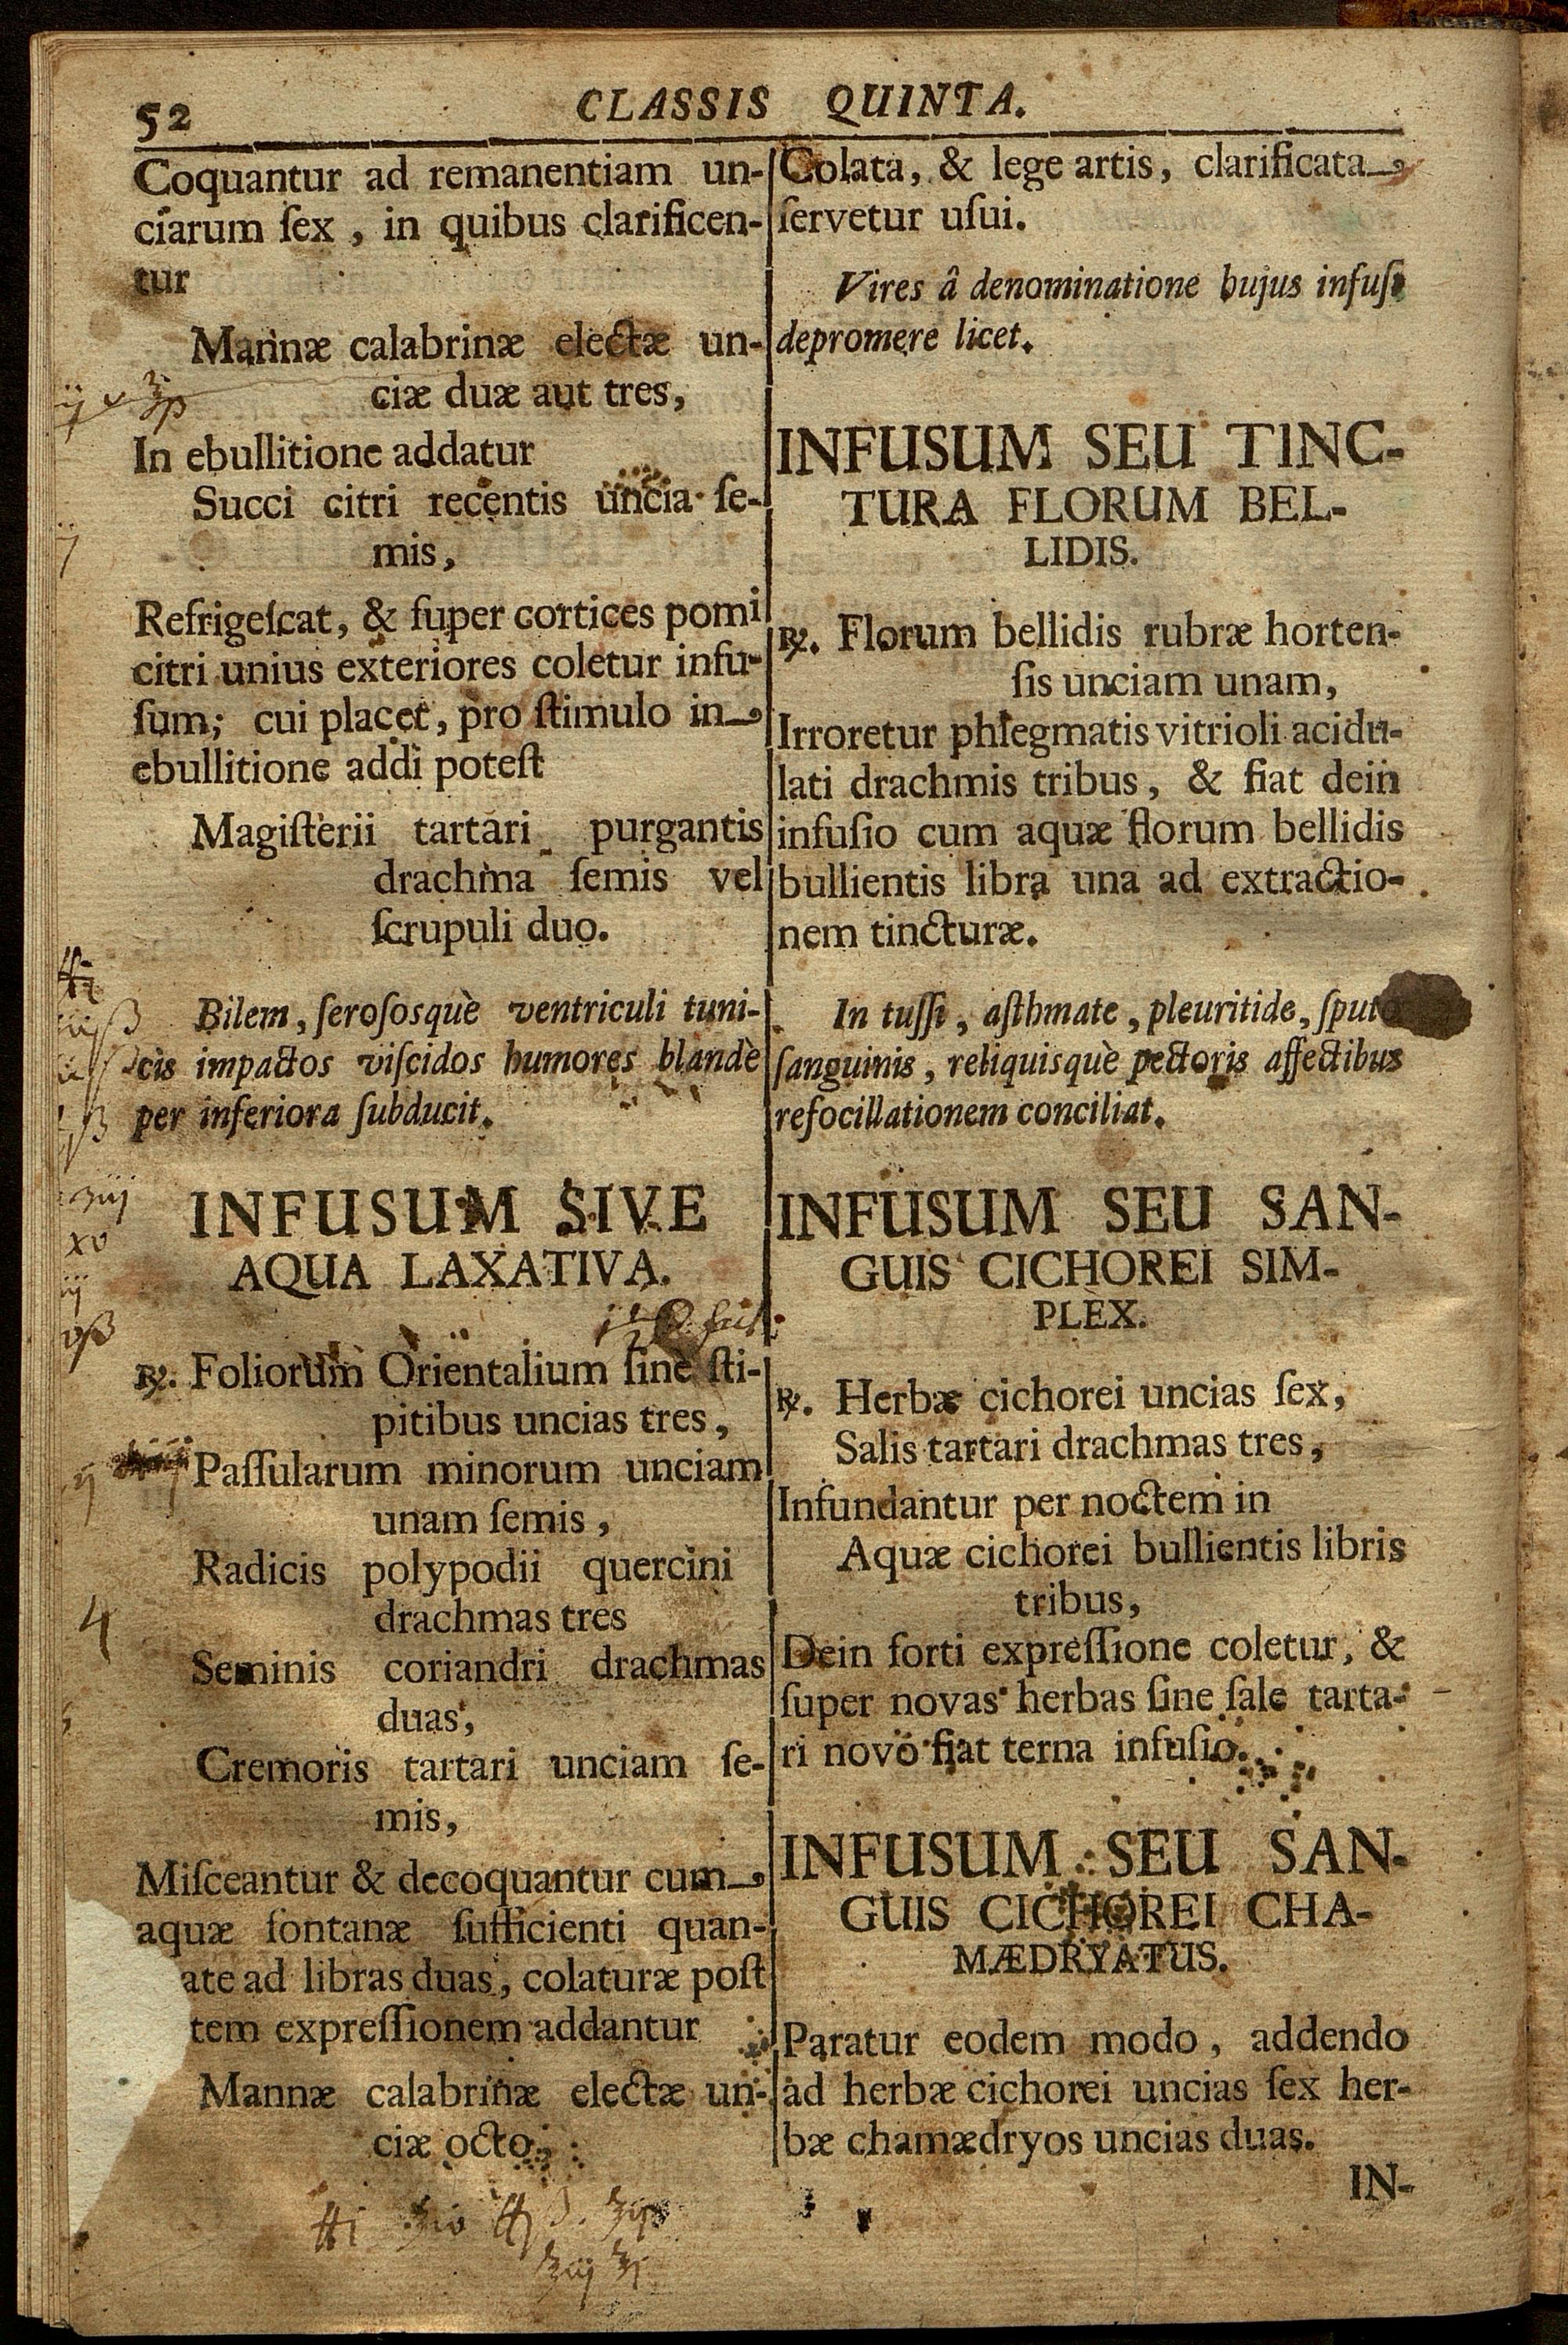 52
CLASSIS QUINTA.
Coquantur ad remanentiam un-
ciarum ſex, in quibus clarificen-
tur
Mannæ calabrinæ electæ un-
ciæ duæ aut tres,
In ebullitione addatur
Succi citri recentis uncia ſe-
mis,
Refrigeſcat, & ſuper cortices pomi
citri unius exteriores coletur infu-
ſum; cui placet, pro ſtimulo in
ebullitione addi poteſt
Magiſterii tartari purgantis
drachma ſemis vel
ſcrupuli duo.
Bilem, ſeroſosquè ventriculi tuni-
cis impactos viſcidos humores blandè
per inferiora ſubducit.
INFUSUM SIVE
AQUA LAXATIVA.
℞. Foliorum Orientalium ſine ſti-
pitibus uncias tres,
Paſſularum minorum unciam
unam ſemis,
Radicis polypodii quercini
drachmas tres
4
Seminis coriandri drachmas
duas,
Cremoris tartari unciam ſe-
mis,
Miſceantur & decoquantur cum
aquæ fontanæ ſufficienti quan-
ate ad libras duas, colaturæ poſt
tem expreſſionem addantur
Mannæ calabrinæ electæ un-
ciæ octo,
Colata, & lege artis, clarificata
ſervetur uſui.
Vires â denominatione hujus infuſi
depromere licet.
INFUSUM SEU TINC-
TURA FLORUM BEL-
LIDIS.
℞. Florum bellidis rubræ horten-
ſis unciam unam,
Irroretur phlegmatis vitrioli acidu-
lati drachmis tribus, & fiat dein
infuſio cum aquæ florum bellidis
bullientis libra una ad extractio-
nem tincturæ.
In tuſſi, aſthmate, pleuritide, ſputo
ſanguinis, reliquisquè pectoris affectibus
refocillationem conciliat.
INFUSUM SEU SAN-
GUIS CICHOREI SIM-
PLEX.
℞. Herbæ cichorei uncias ſex,
Salis tartari drachmas tres,
Infundantur per noctem in
Aquæ cichorei bullientis libris
tribus,
Dein forti expreſſione coletur, &
ſuper novas herbas ſine ſale tarta-
ri novo fiat terna infuſio.
INFUSUM SEU SAN-
GUIS CICHOREI CHA-
MÆDRYATUS.
Paratur eodem modo, addendo
ad herbæ cichorei uncias ſex her-
bæ chamædryos uncias duas.
IN-